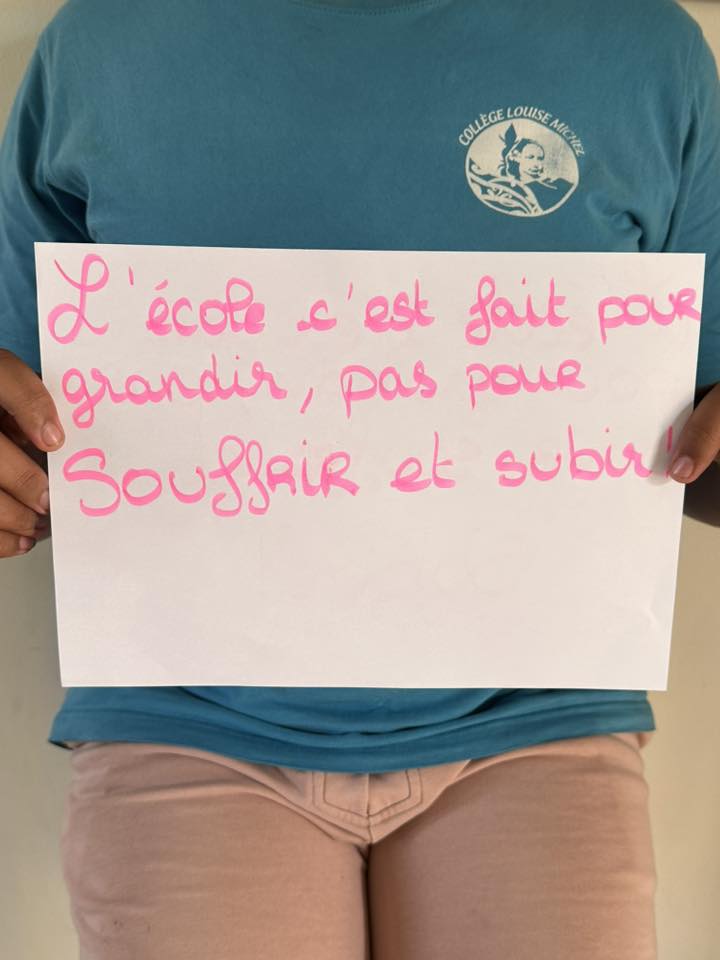 COLLÈGE LOUISE MICHEL
L'école c'est fait pour
grandir, pas pour
Souffrir et subir !